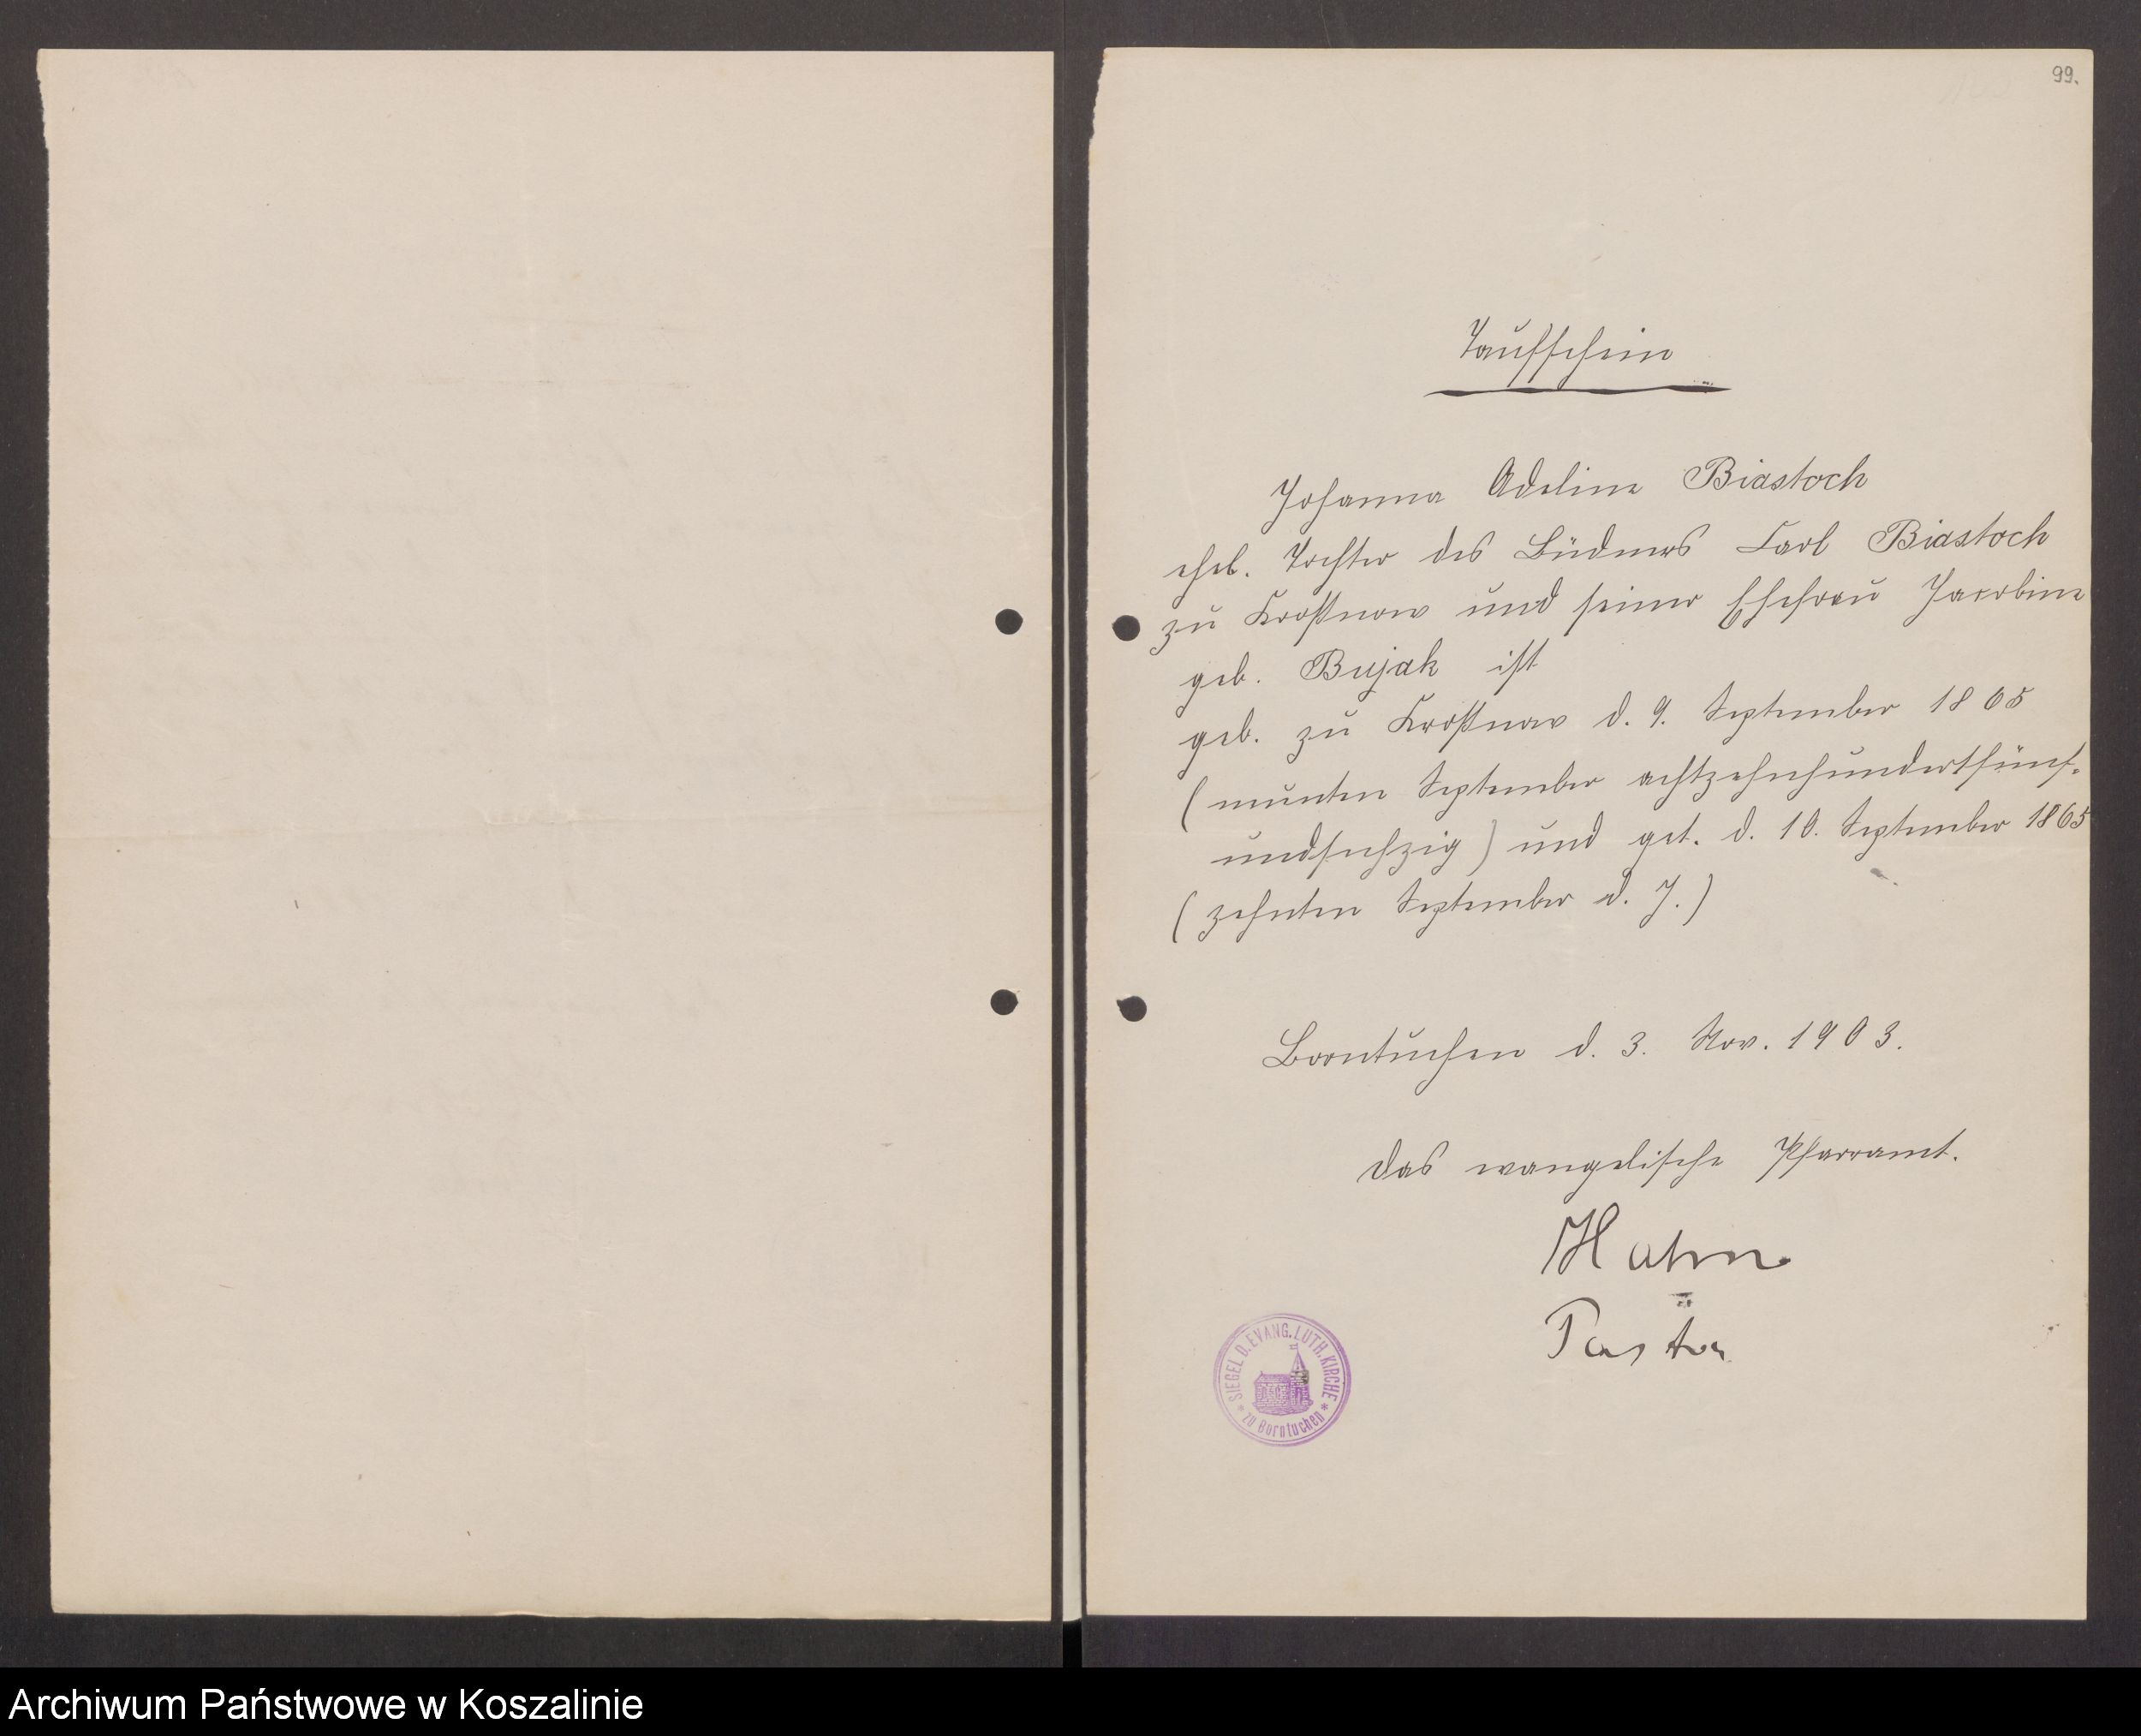 99.
Taufschein
Johanna Adeline Biastoch
ehel. Tochter des Büdners Carl Biastoch
zu Kroßnow und seiner Ehefrau Jacobine
geb. Bujak ist
geb. zu Kroßnow d. 9. September 1865
(neunten September achtzehnhundertfünf-
undsechzig) und get. d. 10. September 1865
(zehnten September d. J.)
Borntuchen d. 3. Nov. 1903.
Das evangelische Pfarramt.
Hahn
Pastor
* SIEGEL D. EVANG. LUTH. KIRCHE *
zu Borntuchen
Archiwum Państwowe w Koszalinie